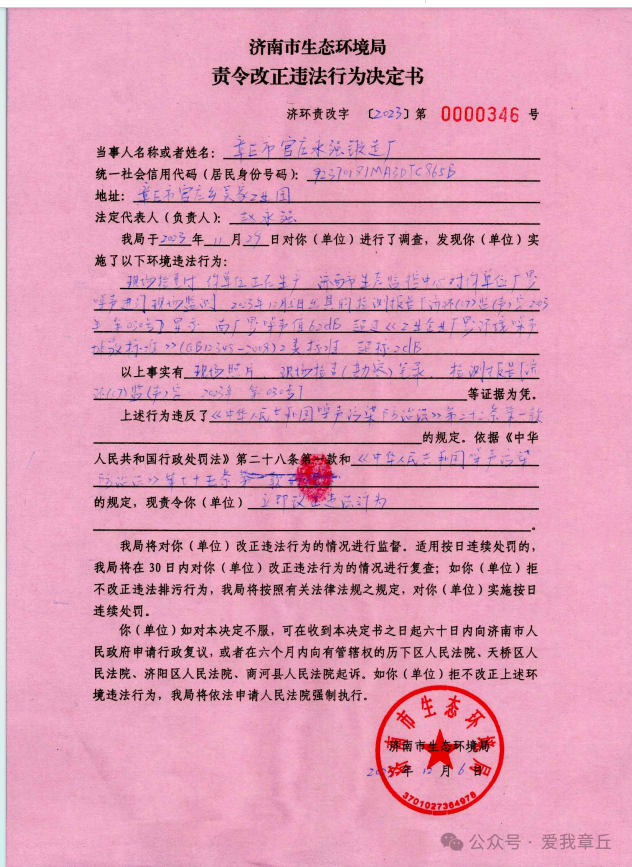 济南市生态环境局
责令改正违法行为决定书
济环责改字 〔2023〕第 0000346 号
当事人名称或者姓名：章丘市官庄永强锻造厂
统一社会信用代码（居民身份证号码）：92370181MA3DTC865B
地址：章丘市官庄乡吴家工业园
法定代表人（负责人）：赵永强
我局于2023年11月29日对你（单位）进行了调查，发现你（单位）实
施了以下环境违法行为：
现场检查时，你单位正在生产，济南市生态监控中心对你单位厂界
噪声进行现场监测，2023年12月5日出具的检测报告
显示，西厂界噪声值62dB，超过《工业企业厂界环境噪声
排放标准》（GB12348-2008）2类标准，超标2dB
以上事实有 现场照片、现场检查（勘察）笔录、检测报告〔济
环（）监（声）字 2023年 第030号〕 等证据为凭。
上述行为违反了《中华人民共和国噪声污染防治法》第二十二条第一款
的规定。依据《中华
人民共和国行政处罚法》第二十八条第一款和《中华人民共和国噪声污染
防治法》第七十五条
的规定，现责令你（单位） 立即改正违法行为
。
我局将对你（单位）改正违法行为的情况进行监督。适用按日连续处罚的，
我局将在 30 日内对你（单位）改正违法行为的情况进行复查；如你（单位）拒
不改正违法排污行为，我局将按照有关法律法规之规定，对你（单位）实施按日
连续处罚。
你（单位）如对本决定不服，可在收到本决定书之日起六十日内向济南市人
民政府申请行政复议，或者在六个月内向有管辖权的历下区人民法院、天桥区人
民法院、济阳区人民法院、商河县人民法院起诉。如你（单位）拒不改正上述环
境违法行为，我局将依法申请人民法院强制执行。
济南市生态环境局
济南市生态环境局
2023年12月6日
3701027364976
公众号·爱我章丘